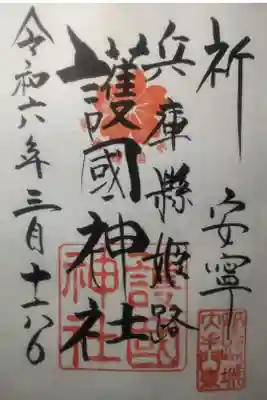 祈 安寧
兵庫縣姫路
護國神社
護國
神社
令和六年三月十六日